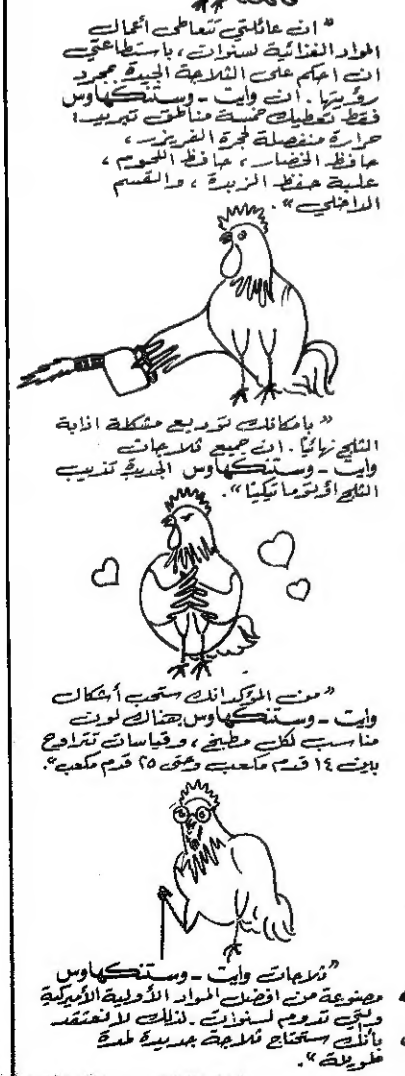 "ان عائلتي تتعاطى أعمال
المواد الغذائية لسنوات ، باستطاعتي
ان احكم على الثلاجة الجيدة بمجرد
رؤيتها . ان وايت - وستنكهاوس
فقط تعطيك خمسة مناطق تبريد :
حرارة منفصلة لحجرة الفريزر ،
حافظ الخضار ، حافظ اللحوم ،
علبة حفظ الزبدة ، والقسم
الداخلي" .
"بامكانك توديع مشكلة اذابة
الثلج نهائيًا . ان جميع ثلاجات
وايت - وستنكهاوس الجديدة تذيب
الثلج اوتوماتيكيًا" .
"من المؤكد انك ستحب أشكال
وايت - وستنكهاوس هناك لون
مناسب لكل مطبخ ، وقياسات تتراوح
بين ١٤ قدم مكعب وحتى ٢٥ قدم مكعب" .
"ثلاجات وايت - وستنكهاوس
مصنوعة من افضل المواد الأولية الأميركية
ولتي تدوم لسنوات . لذلك لا نعتقد
بأنك ستحتاج ثلاجة جديدة لمدة
طويلة" .